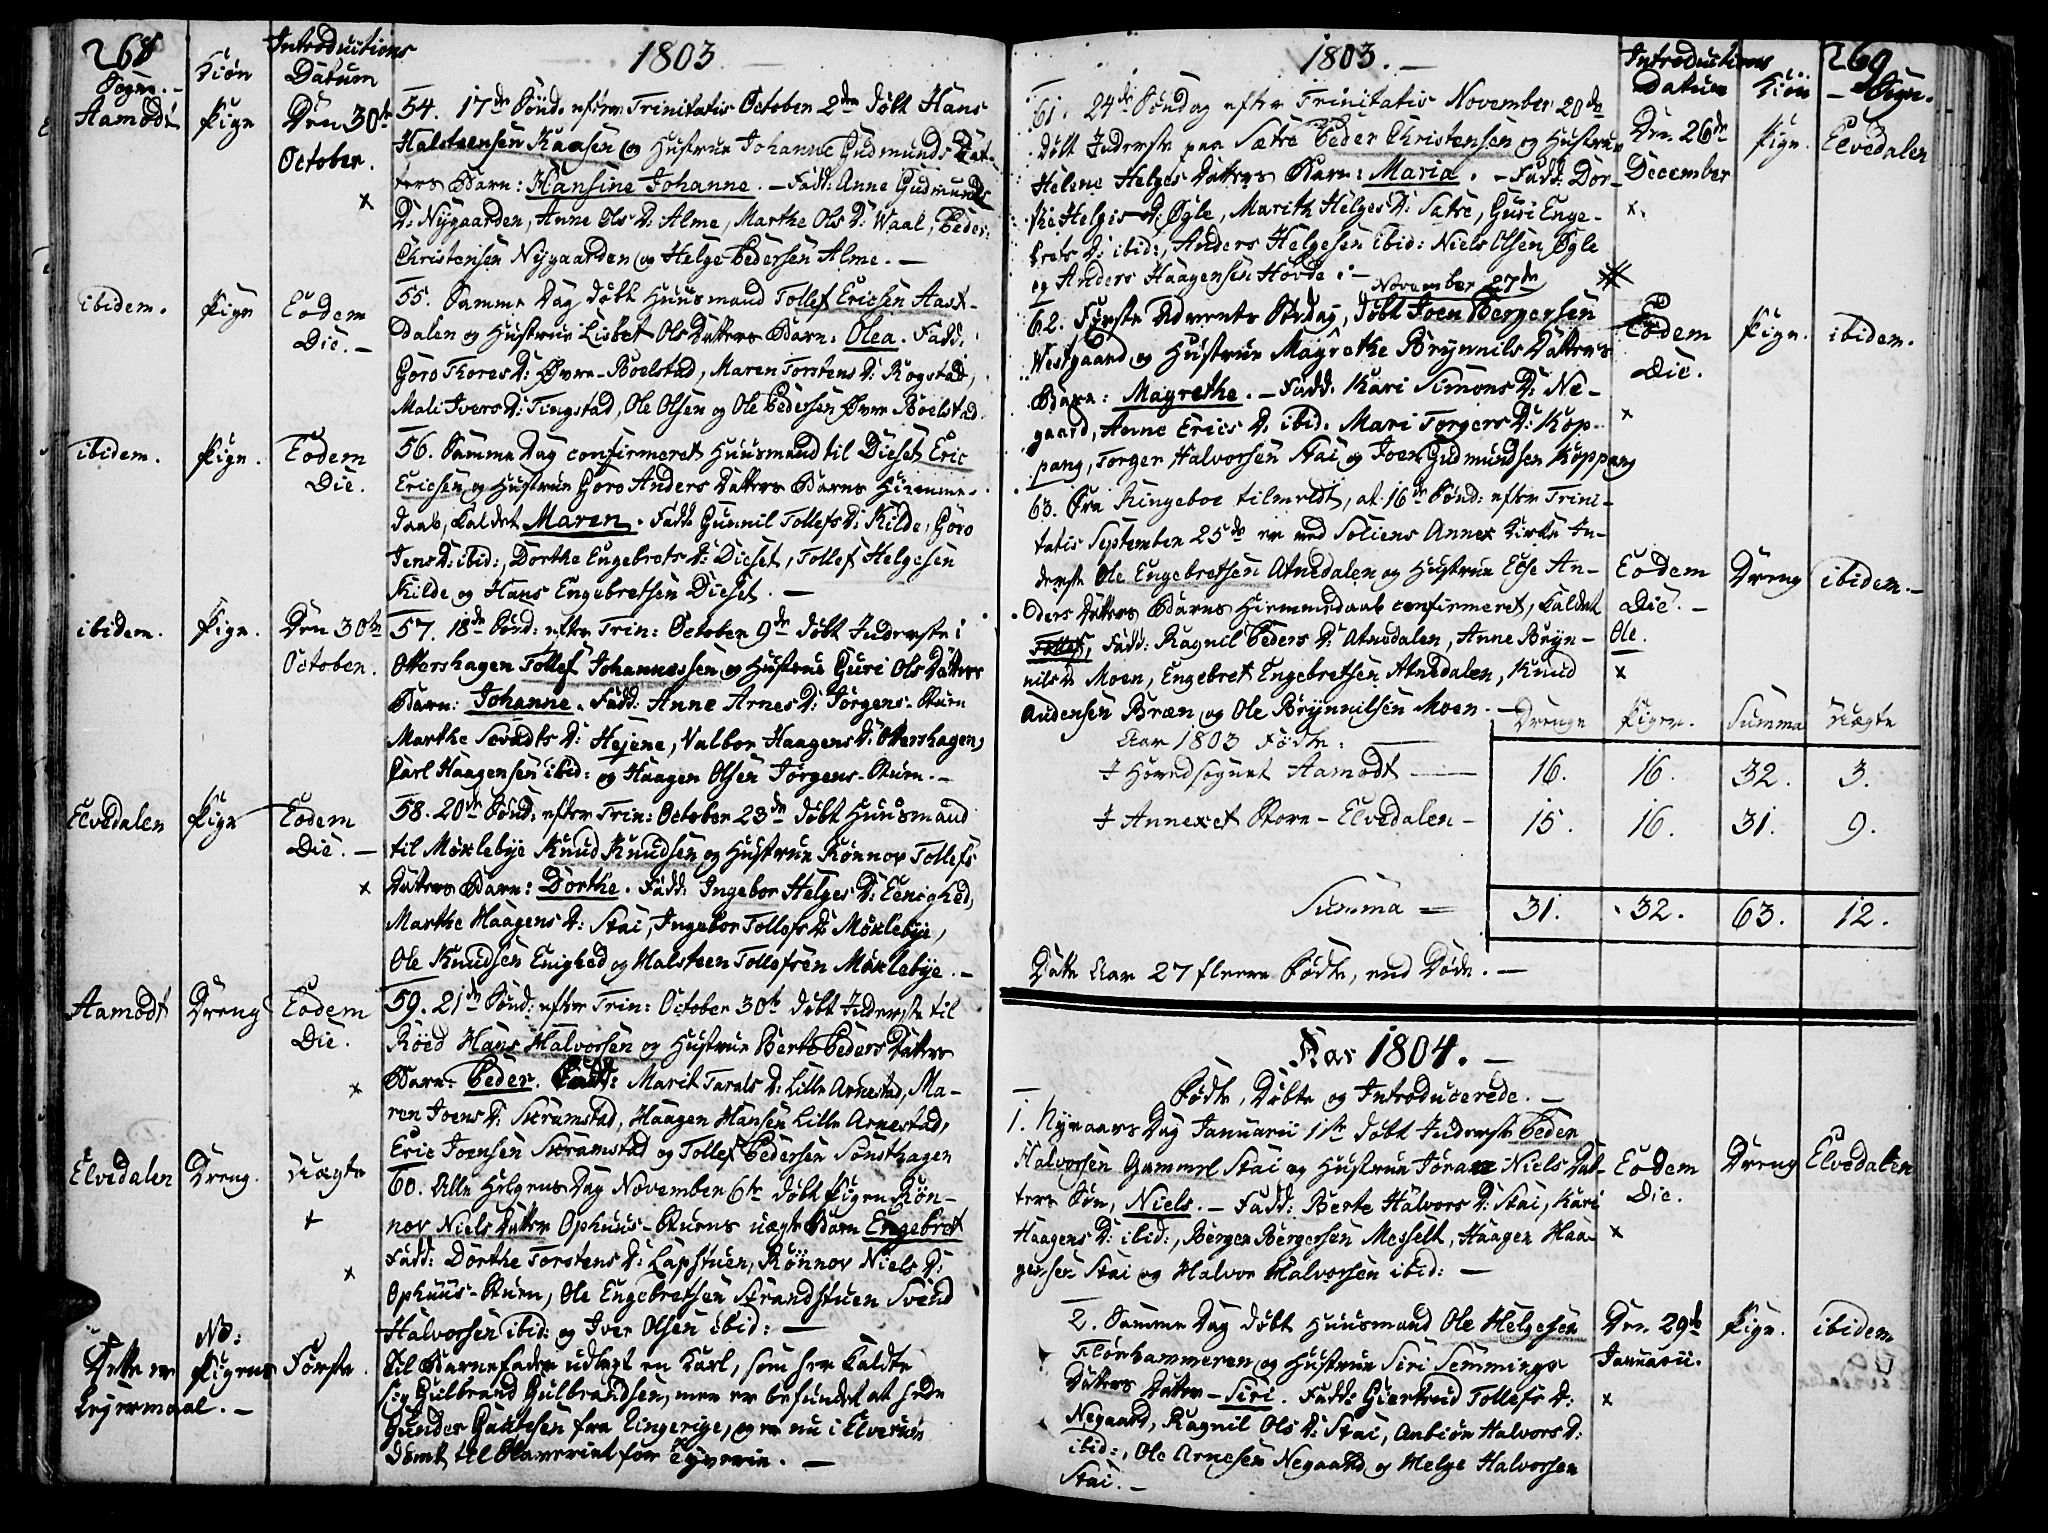 268
Sogne. Kiøn Introductions Datum 1803
Aamodt Pige Den 30te October. ×
54. 17de Sønd. efter Trinitatis October 2den døbt Hans
Halsteensen Kaasen og Hustrue Johanne Gudmunds Dat-
ters Barn: Hansine Johanne. – Fadd: Anne Gudmunds
D: Nygaarden, Anne Ols D: Alme, Marthe Ols D: Waal, Peder
Christensen Nygaarden og Helge Pedersen Alme. –
ibidem. Pige Eodem Die. –
55. Samme Dag døbt Huusmand Tollef Ericsen Aast-
dalen og Hustrue Lisbet Ols Datters Barn: Olea. Fadd.
Goro Thores D: Øvre-Boelstad, Maren Torstens D: Rogstad,
Mali Ivers D: Tingstad, Ole Olsen og Ole Pedersen Øvre Boelstad.
ibidem. Pige. Eodem Die.
56. Samme Dag confirmeret Huusmand til Dieset Eric
Ericsen og Hustrue Goro Anders Datters Barns Hiemme-
daab, kaldet Maren. Fadd: Gunnil Tollefs D: Kilde, Goro
Jens D: ibid:, Dorthe Engebrets D: Dieset, Tollef Helgesen
Kilde og Hans Engebretsen Dieset. –
ibidem. Pige. Den 30te October.
57. 18de Sønd: efter Trin: October 9de døbt Inderste i
Ottershagen Tollef Johannessen og Hustrue Guri Ols Datters
Barn: Johanne. Fadd: Anne Arnes D: Jørgens-Stuen
Marthe Sevadts D: Hejene, Valbor Haagens D: Ottershagen,
Carl Haagensen ibid: og Haagen Olsen Jørgens-Stuen. –
Elvedalen Pige Eodem Die. – ×
58. 20de Sønd: efter Trin: October 23de døbt Huusmand
til Møklebye Knud Knudsen og Hustrue Rønnov Tollefs
Datters Barn: Dorthe. Fadd: Ingebor Helges D: Eenighed,
Marthe Haagens D: Stai, Ingebor Tollefs D: Møklebye,
Ole Knudsen Enighed og Halsteen Tollefsen Møklebye. –
Aamodt Dreng Eodem Die. ×
59. 21de Sønd: efter Trin: October 30te døbt Inderste til
Røed Hans Halvorsen og Hustrue Berte Peders Datters
Barn: Peder. Fadd: Marit Tarals D: Lille Arnestad, Ma-
ren Joens D: Skramstad, Haagen Hansen Lille Arnestad,
Eric Joensen Skramstad og Tollef Pedersen Sønsthagen
Elvedalen Dreng. Uægte × ×
60. Alle Helgens Dag November 6te døbt Pigen Røn-
nov Niels Datter Ophuus-Stuens uægte Barn Engebret
Fadd: Dorthe Torstens D: Lapstuen, Rønnov Niels D:
Ophuus-Stuen, Ole Engebretsen Strandstuen Svend
Halvorsen ibid: og Iver Olsen ibid: –
NB: Dette er Pigens Første Leyermaal. –
Til Barnefader udlagt en Karl, som her kaldte
sig Gulbrand Gulbrandsen, men er befundet at hede
Gunder Guttesen fra Ringerige, og er nu i Elverum
dømt til Slaveriet for Tyverie. –
269
1803. – Introductions Datum Kiøn Sogn.
61. 24de Søndag efter Trinitatis November 20de
døbt Inderste paa Sætre Peder Christensen og Hustrue
Helene Helges Datters Barn: Maria. – Fadd: Dor-
the Helges D: Øgle, Marith Helges D: Sætre, Guri Enge-
brets D: ibid:, Anders Helgesen ibid: Niels Olsen Øgle
og Anders Haagensen Hovde: –
Den 26de December ×. Pige. Elvedalen
November 27de
62. Første Advents Søndag, døbt Joen Bergersen
Westgaard og Hustrue Magrethe Brynnils Datters
Barn: Magrethe. – Fadd: Kari Simons D: Ne-
gaard, Anne Erics D. ibid. Mari Torgers D: Kop-
pang, Torger Halvorsen Stai og Joen Gudmundsen Koppang
Eodem Die. × Pige. ibidem.
63. Fra Ringeboe tilmeldt, at 16de Sønd: efter Trini-
tatis September 25de er ved Soliens Annex Kirke In-
derste Ole Engebretsen Atnedalen og Hustrue Else An-
ders Datters Barns Hiemmedaab confirmeret, kaldet
Tollef, Fadd: Ragnil Peders D: Atnedalen, Anne Bryn-
nils D: Moen, Engebret Engebretsen Atnedalen, Knud
Audensen Bræn og Ole Brynnilsen Moen. –
Eodem Die. – Ole. × Dreng ibidem. –
Drenge Piger. Summa Uægte
Aar 1803 Fødte:
I Hovedsognet Aamodt 16. 16. 32. 3.
I Annexet Store-Elvedalen – 15. 16. 31. 9.
Summa = 31. 32. 63. 12.
Dette Aar 27 fleere Fødte, end Døde. –
Aar 1804. –
Fødte, Døbte og Introducerede. –
1. Nyeaars Dag Januarii 1ste døbt Inderste Peder
Halvorsen Gammel Stai og Hustrue Jøran Niels Dat-
ters Søn, Niels. – Fadd: Berte Halvors D: Stai, Kari
Haagens D: ibid:, Berger Bergersen Messelt, Haagen Haa-
gensen Stai og Halvor Halvorsen ibid: –
Eodem Die. × Dreng Elvedalen
2. Samme Dag døbt Huusmand Ole Helgesen
Florhammeren og Hustrue Siri Semmings
Datters Datter – Siri. Fadd: Giertrud Tollefs D:
Negaard, Ragnil Ols D: Stai, Anbiør Halvors D:
ibid:, Ole Arnesen Negaard og Helge Halvorsen
Stai. –
Den 29de Januarii. × Pige. ibidem